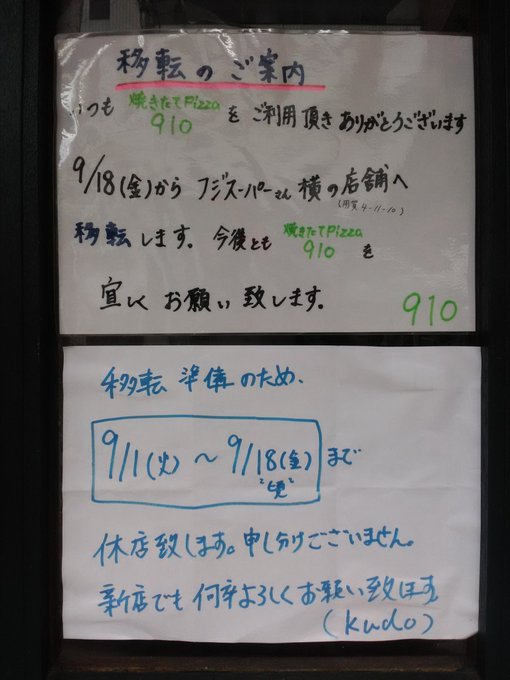 移転のご案内
いつも 焼きたてPizza 910 を ご利用頂き ありがとうございます
9/18(金)から フジスーパーさん 横の店舗へ
(用賀4-11-10)
移転します。今後とも 焼きたてPizza 910 を
宜しく お願い致します。
910
移転 準備のため、
9/1(火) ～ 9/18(金) まで
"頃"
休店致します。申し分けございません。
新店でも 何卒よろしくお願い致します
(kudo)